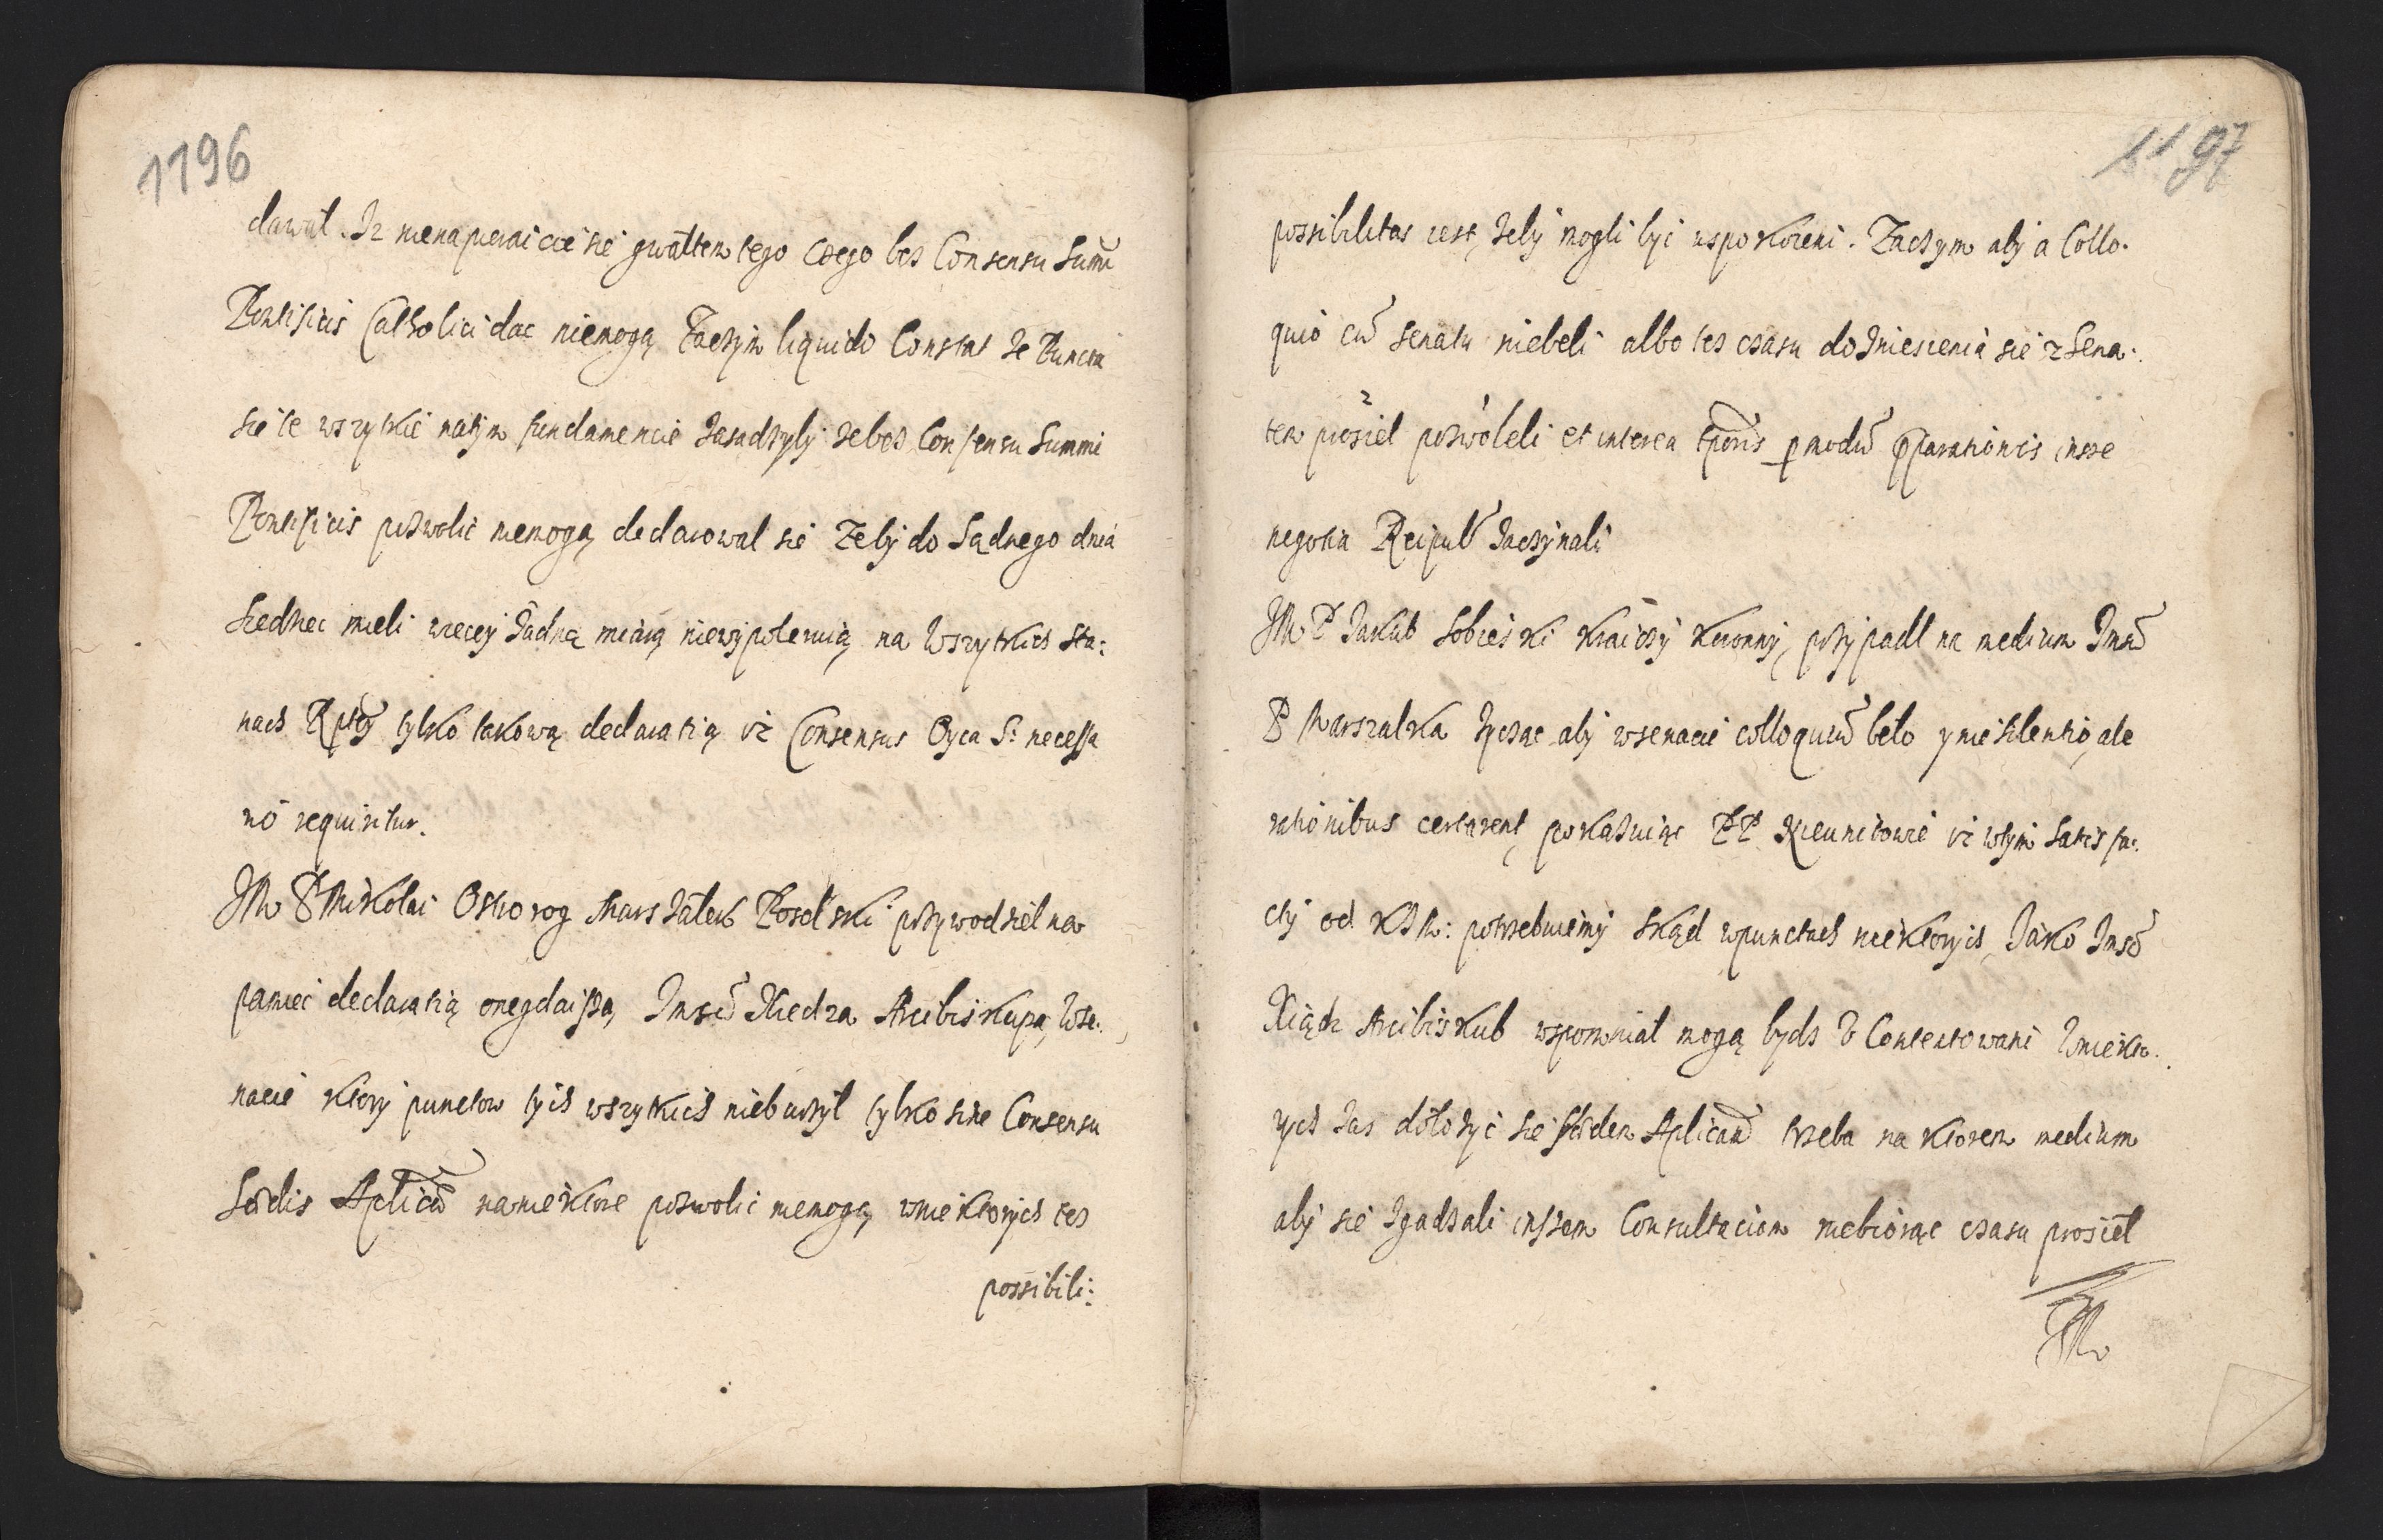 1196
dawał. Iz nienapieraicie sie gwałtem tego czego bes Consensu Sumi
Pontificis Catholici dac niemogą Zaczym liquido Constat ze Puncta
sie te wszytkie natym fundamencie zasadzyly ze bes Consensu Summi
Pontificis pozwolic niemogą declarowal sie Zeby do Sądnego dnia
siedziec mieli wiecey żadną miarą niewypotemią na Wszytkich Sta:
nach tylko takową declaratią iż Consensus Oyca S: necessa
rio requiritur.
JM P Mikolai Ostrorog Marszałek Poselski przywodzieł na
pamiec declaratią onegdaiszą Imsci Xiedza Arcibiskupa, Wse:
nacie ktory punctow tych wszytkich nieburzył tylko sine Consensu
Sedis Aplica na niektore pozwolic niemogą wniektorych tes
possibili:
1197
possibilitas iest, żeby mogli byc uspokoieni. Zaczym aby a Collo.
quio cu Senatu niebeli albo tes czasu do zniesienia sie z Sena.
tem prosieł pozwoleli et interea tporis p modu pparationis insze
negotia Reipub zaczynali
JM P Jakub Sobieski Kraiczy Koronny, przypadl na medium Imsci
P Marszalka życząc aby wsenacie colloquiu beło y nie silentio, ale
rationibus certarent pokazuiąc PP Nieunitowie iż wtym satisfa:
cty od KJM: potrzebuiemy skąd wpunctach niektorych, Jako Imsc
Xiądz Arcibiskub wspomniał mogą bydz Contentowani Wniekto.
rych zas dołożyc sie Sedem Aplicam trzeba na ktorem medium
aby sie zgadzali inszem Consultaciom niebiorąc czasu prosieł
JM